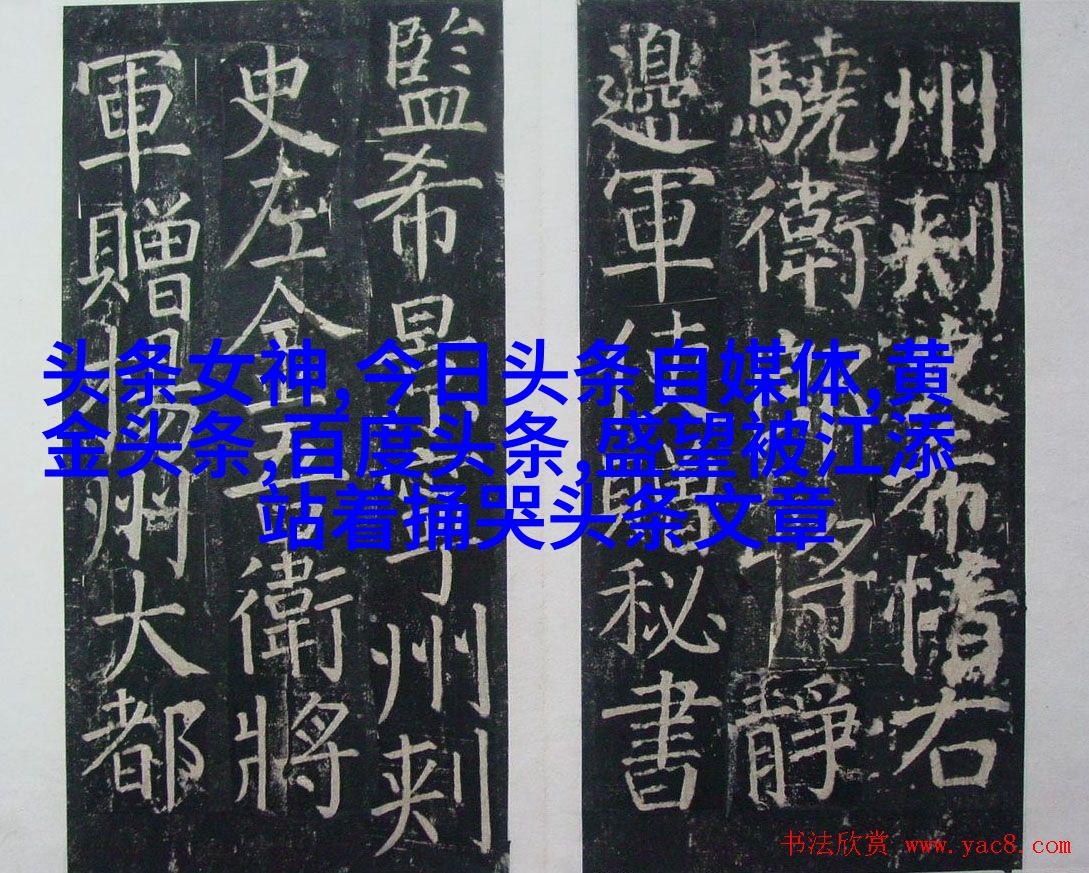 州刾史愔右
驍衛將靜
邊軍使贈秘書
監希州刾
史左金吾衛將
軍贈揚州大都
头条女神,今日头条自媒体,黄
金头条,百度头条,盛望被江添
站着捅哭头条文章
书法欣赏 www.yac8.com